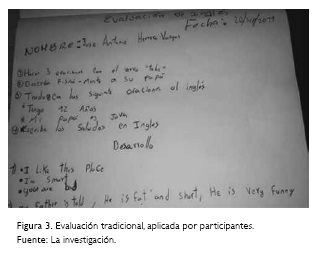 Evaluación de
Fecha:
NOMBRE: Jose Antonio Herrera Vargas
Hacer 3 oraciones con el
a su papá
Traduzcan las siguiente oraciones al inglés
Tengo 12 Años
Mi Papá es
Escriba los Saludos en Ingles
Desarrollo
1) • I Like this Place
• I'm Smart
• you are bad
Father is tall, He is fat and short, He is very funny
Figura 3. Evaluación tradicional, aplicada por participantes.
Fuente: La investigación.